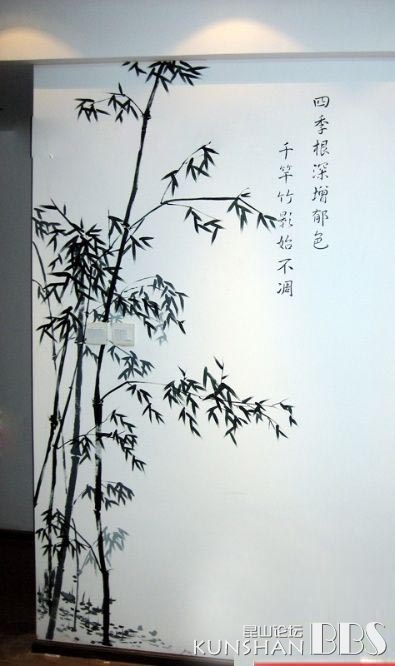 四季根深增郁色
千竿竹影始不凋
昆山论坛
KUNSHAN BBS